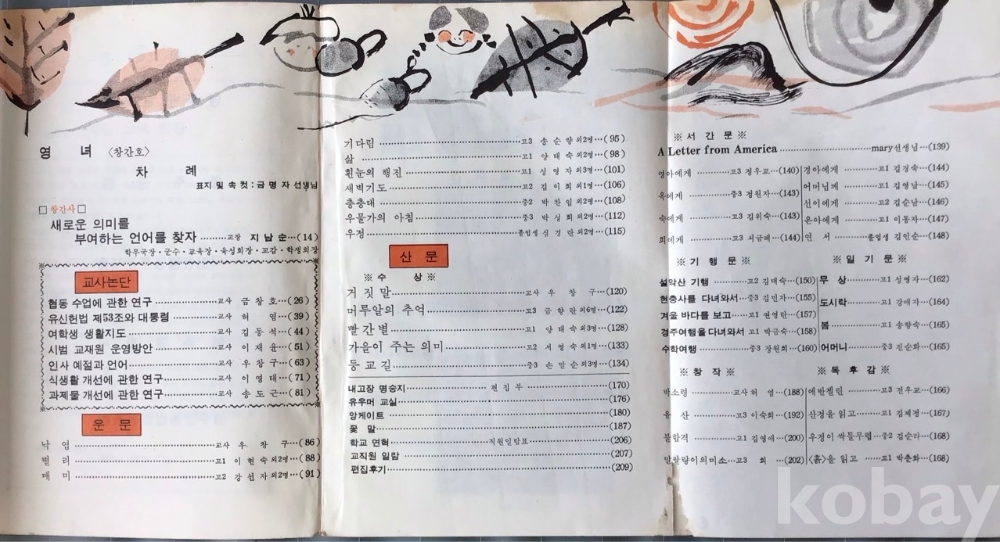 영 녀 〈창간호〉
차 례
표지 및 속 컷 : 금 명 자 선생님
□창간사□
새로운 의미를
부여하는 언어를 찾자 ……교장 지 남 순…(14)
학무국장·군수·교육장·육성회장·교감·학생회장
교사논단
협동 수업에 관한 연구……………교사 금 창 호…(26)
유신헌법 제53조와 대통령…………교사 허 영…(39)
여학생 생활지도……………………교사 김 동 석…(44)
시범 교재원 운영방안………………교사 이 재 윤…(51)
인사 예절과 언어……………………교사 우 창 구…(63)
식생활 개선에 관한 연구……………교사 이 영 대…(71)
과제물 개선에 관한 연구……………교사 송 도 근…(81)
운 문
낙 엽……………………교사 우 창 구…(86)
벌 리……………………고1 이 현 숙 외2명…(88)
매 미……………………고2 강 선 자 외2명…(91)
기다림……………………고3 송 순 향 외2명…(95)
삶……………………고1 양 태 숙 외2명…(98)
흰눈의 행진……………………고1 심 영 자 외3명…(101)
새벽기도……………………고2 김 이 희 외1명…(106)
층층대……………………중2 박 찬 임 외2명…(108)
우물가의 아침……………………중3 박 싱 희 외2명…(112)
우정……………………졸업생 신 경 란 외2명…(115)
산 문
※수 상※
거 짓 말……………………교사 우 창 구…(120)
머루알의 추억……………………고3 금 향 란 외6명…(122)
빨 간 별……………………고1 양 태 숙 외3명…(128)
가을이 주는 의미……………………고2 서 영 숙 외1명…(133)
등 교 길……………………중3 손 민 순 외3명…(134)
내고장 명승지……………………편 집 부……(170)
유우머 교실……………………(176)
앙케이트……………………(180)
꽃 말……………………(187)
학교 연혁……………………직원일람표……(206)
교직원 일람……………………(207)
편집후기……………………(209)
※서 간 문※
A Letter from America……………………mary선생님…(139)
영아에게……고3 정우교…(140)
경아에게……고1 김경숙…(144)
옥에게……중3 정원자…(143)
어머님께……고1 김영남…(145)
선이에게……고2 김순남…(146)
숙에게……고3 김위숙…(143)
은아에게……고1 이동자…(147)
희에게……고3 서금폐…(144)
언 서……졸업생 김인순…(148)
※기 행 문※
설악산 기행……고2 김매숙…(150)
현충사를 다녀와서……중3 김민자…(155)
겨울 바다를 보고……고1 권영란…(157)
경주여행을 다녀와서 고1 박금숙…(158)
수학여행……중3 장원희…(160)
※일 기 문※
무 상……고1 성병자…(162)
도시락……고1 강매자…(164)
봄……고1 송향숙…(165)
어머니……중3 진순화…(165)
※창 작※
박소령……교사 허 영…(188)
유 산……고3 이숙희…(192)
불합격……고1 김영애…(200)
(202)
※독 후 감※
에반젤린……고3 전우교…(166)
산정을 읽고……고1 김계정…(167)
우정이 싹틀무렵…중2 김순다…(168)
〈흙〉을 읽고……고1 박춘화…(168)
kobay